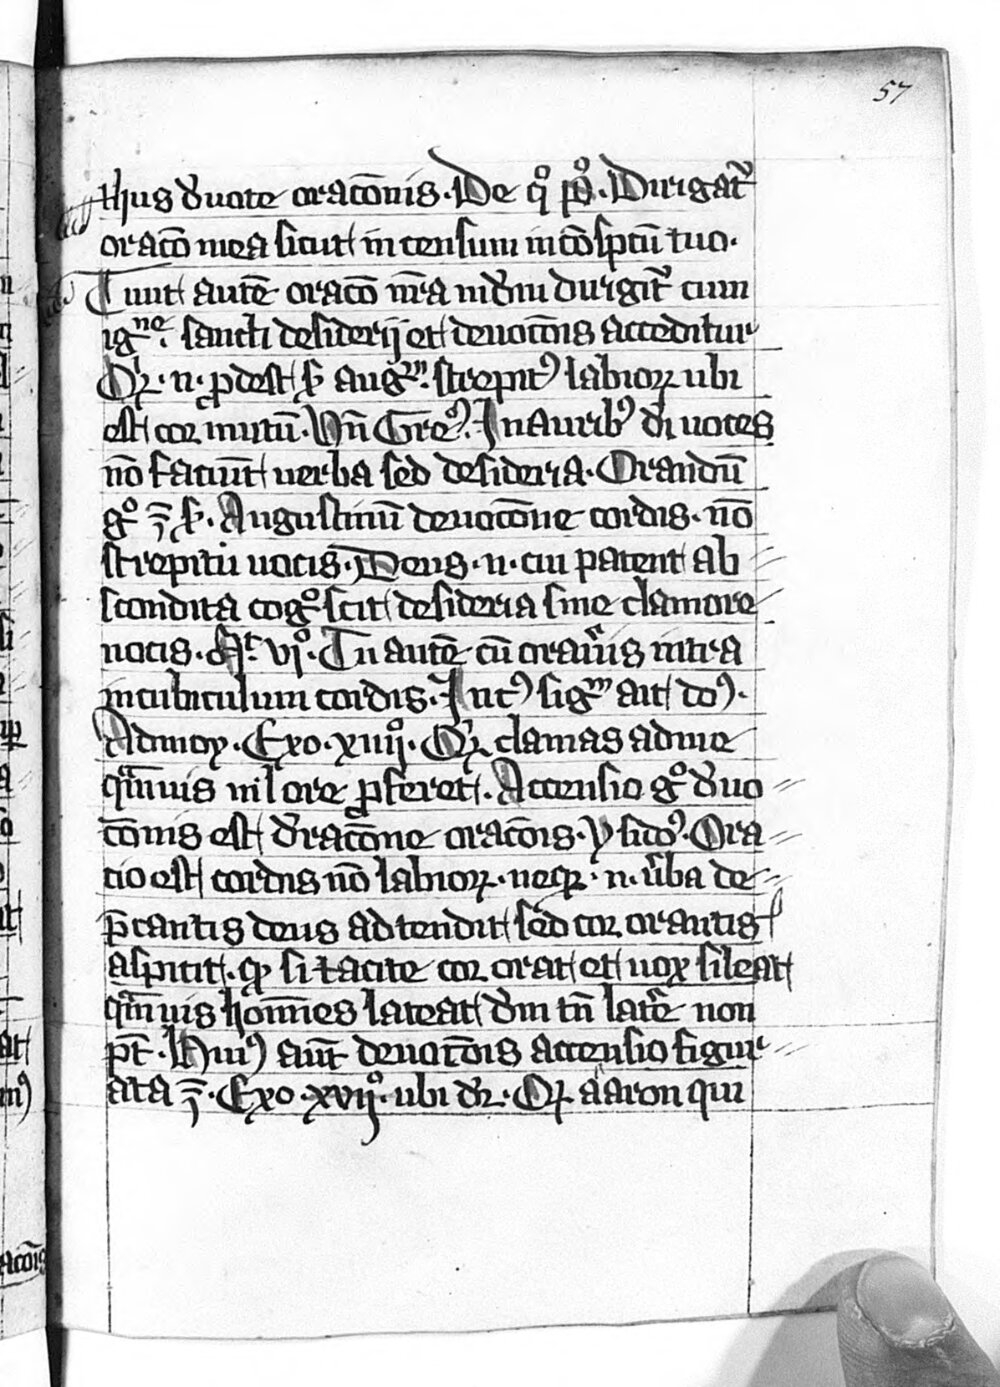 57
hijus deuote oracōnis. De qͦ pͦs. Dirigat᷑
oracō mea sicut incensum in cōspectū tuo.
Tunc autē oracō nr̄a in deum dirigit᷑ cum
igne. sancti desiderij et deuocōnis acceditur
Qr. n. prodest s aug᷑m. strepitꝰ labioꝝ ubi
est cor mutū. Vn̄ Greꝰ. In auribꝰ dei uoces
nō faciūt uerba sed desideria. Orandū
gͦ ē s. Augustinū deuocōne cordis. nō
strepitu uocis. Deus. n. cui patent ab
scondita cogͦ scit desideria sine clamore
uocis. Mt. vjͦ. Tu autē cū oraueris intra
in cubiculum cordis. In cꝰ sigm ait doꝰ.
Ad moy. Exo. xiiijͦ. Qr clamas ad me
quāuis nil ore proferet. Accensio gͦ deuo
cōnis est deracōne oracōis. ysidoꝰ. Ora
cio est cordis nō labioꝝ. neqꝫ. n. uerba de
p̄cantis deus adtendit sed cor orantis
aspicit. qꝫ si tacite cor orat et uox sileat
quāuis homīes lateat deum tn̄ latere non
pt̄. Huiꝰ aūt deuocōis accensio figur
ata ē. Exo. xvijͦ. ubi dr. Qꝫ aaron qui
acōis